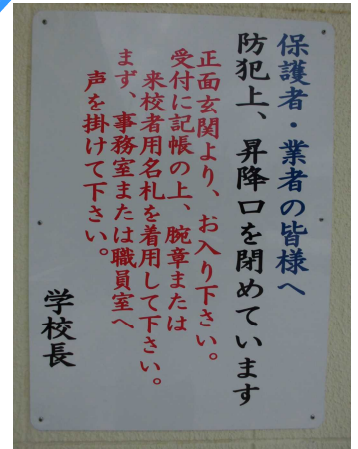 保護者・業者の皆様へ
防犯上、昇降口を閉めています
正面玄関より、お入り下さい。
受付に記帳の上、腕章または
来校者用名札を着用して下さい。
まず、事務室または職員室へ
声を掛けて下さい。
学校長